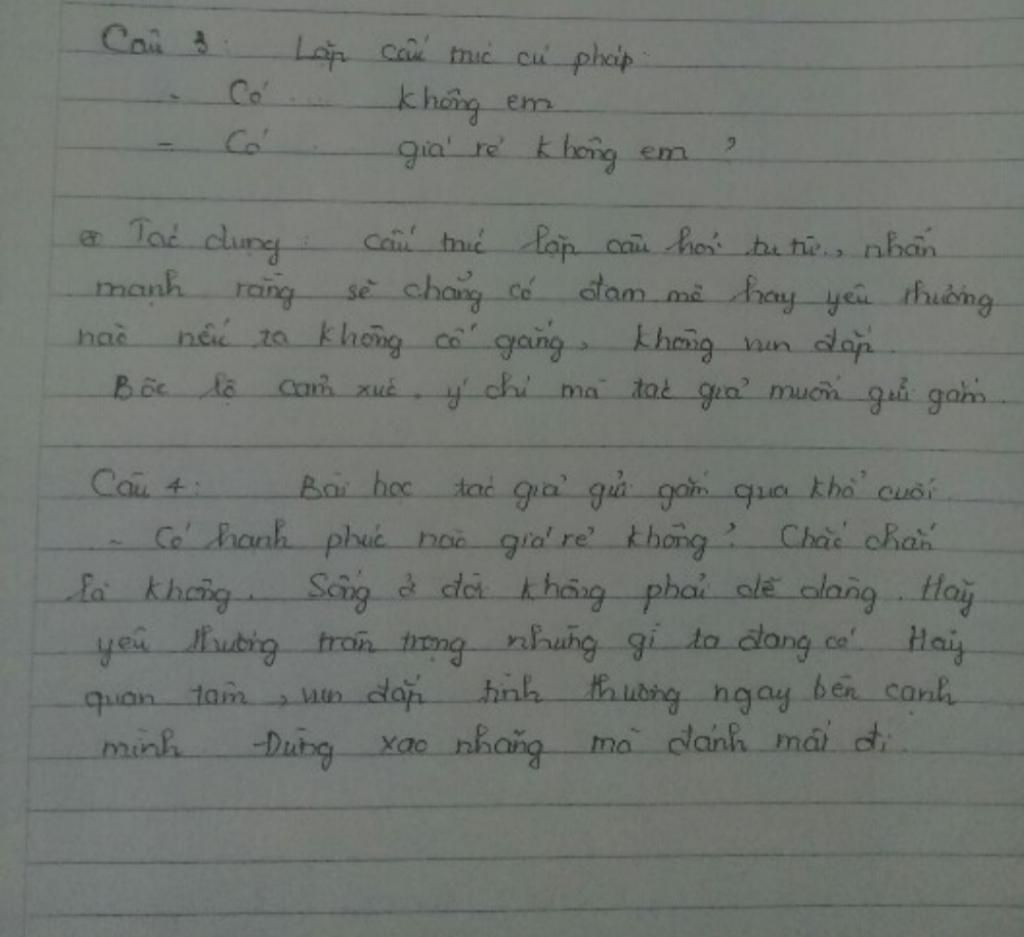 Câu 3: Lặp cấu trúc cú pháp:
- Có .... không em
- Có .... giá rẻ không em?
* Tác dụng: cấu trúc lặp câu hỏi tu từ, nhấn
mạnh rằng sẽ chẳng có đam mê hay yêu thương
nào nếu ta không cố gắng, không vun đắp.
Bộc lộ cảm xúc, ý chí mà tác giả muốn gửi gắm.
Câu 4: Bài học tác giả gửi gắm qua khổ cuối
- Có hạnh phúc nào giá rẻ không? Chắc chắn
là không. Sống ở đời không phải dễ dàng. Hãy
yêu thương trân trọng những gì ta đang có. Hãy
quan tâm, vun đắp tình thương ngay bên cạnh
mình. Đừng xao nhãng mà đánh mất đi.